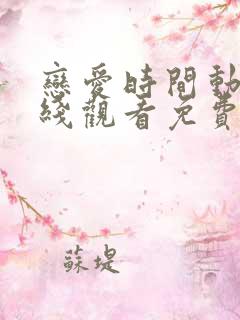 戀愛時間動
綫觀看免費
蘇堤